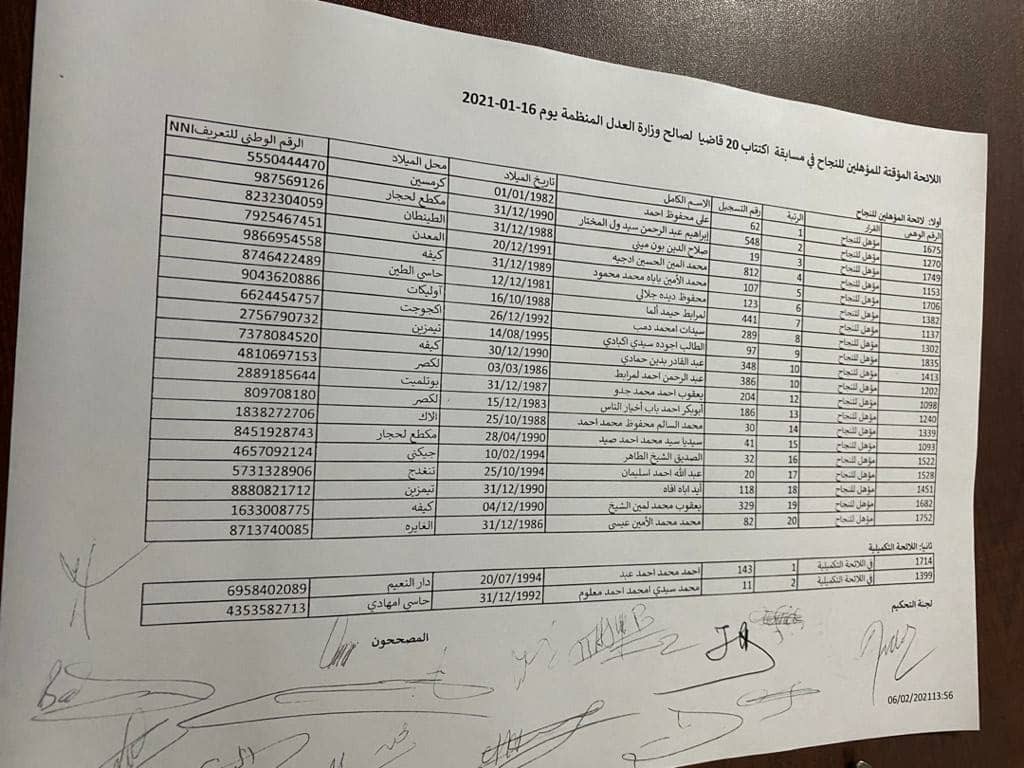 اللائحة المؤقتة للمؤهلين للنجاح في مسابقة اكتتاب 20 قاضيا لصالح وزارة العدل المنظمة يوم 16-01-2021
أولا: لائحة المؤهلين للنجاح
الرقم الوهمي القرار الرتبة رقم التسجيل الاسم الكامل تاريخ الميلاد محل الميلاد الرقم الوطني للتعريف NNI
1675 مؤهل للنجاح 1 62 علي محفوظ احمد 01/01/1982 كرمسين 5550444470
1270 مؤهل للنجاح 2 548 إبراهيم عبد الرحمن سيد ول المختار 31/12/1990 مكطع لحجار 987569126
1749 مؤهل للنجاح 3 19 صلاح الدين بون ميني 31/12/1988 الطينطان 8232304059
1153 مؤهل للنجاح 4 812 محمد المين الحسين ادجيه 20/12/1991 المعدن 7925467451
1706 مؤهل للنجاح 5 107 محمد الأمين باباه محمد محمود 31/12/1989 كيفه 9866954558
1382 مؤهل للنجاح 6 123 محفوظ ديده جلالي 12/12/1981 حاسي الطين 8746422489
1137 مؤهل للنجاح 7 441 لمرابط حيمد ألما 16/10/1988 أوليكات 9043620886
1302 مؤهل للنجاح 8 289 سيدات امحمد دمب 26/12/1992 اكجوجت 6624454757
1835 مؤهل للنجاح 9 97 الطالب اجوده سيدي اكبادي 14/08/1995 تيمزين 2756790732
1413 مؤهل للنجاح 10 348 عبد القادر بدين حمادي 30/12/1990 كيفه 7378084520
1202 مؤهل للنجاح 10 386 عبد الرحمن احمد لمرابط 03/03/1986 لكصر 4810697153
1098 مؤهل للنجاح 12 204 يعقوب احمد محمد جدو 31/12/1987 بوتلميت 2889185644
1240 مؤهل للنجاح 13 186 أبوبكر احمد باب أخيار الناس 15/12/1983 لكصر 809708180
1339 مؤهل للنجاح 14 30 محمد السالم محفوظ محمد احمد 25/10/1988 الاك 1838272706
1093 مؤهل للنجاح 15 41 سيديا سيد محمد احمد صيد 28/04/1990 مكطع لحجار 8451928743
1522 مؤهل للنجاح 16 32 الصديق الشيخ الطاهر 10/02/1994 جيكني 4657092124
1528 مؤهل للنجاح 17 20 عبد الله احمد اسليمان 25/10/1994 تنغدج 5731328906
1451 مؤهل للنجاح 18 118 أيد اباه افاه 31/12/1990 تيمزين 8880821712
1682 مؤهل للنجاح 19 329 يعقوب محمد لمين الشيخ 04/12/1990 كيفه 1633008775
1752 مؤهل للنجاح 20 82 محمد محمد الأمين عيسى 31/12/1986 الغايره 8713740085
ثانيا: اللائحة التكميلية
1714 في اللائحة التكميلية 1 143 احمد محمد احمد عبد 20/07/1994 دار النعيم 6958402089
1399 في اللائحة التكميلية 2 11 محمد سيدي امحمد احمد معلوم 31/12/1992 حاسي امهادي 4353582713
لجنة التحكيم
المصححون
06/02/202113:56